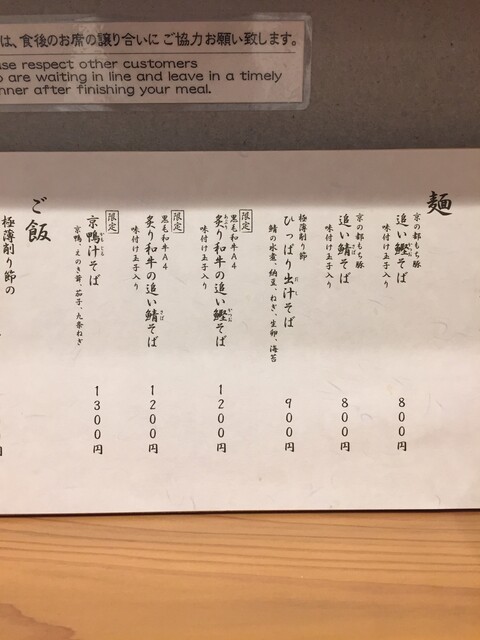 は、食後のお席の譲り合いに ご協力お願い致します。
se respect other customers
o are waiting in line and leave in a timely
nner after finishing your meal.
麺
京の都もち豚
追い鰹そば
かつお
味付け玉子入り
800円
京の都もち豚
追い鯖そば
さば
味付け玉子入り
800円
極薄削り節
ひっぱり出汁そば
だし
鯖の水煮、納豆、ねぎ、生卵、海苔
900円
限定
黒毛和牛A4
炙り和牛の追い鰹そば
あぶり
かつお
味付け玉子入り
1200円
限定
黒毛和牛A4
炙り和牛の追い鯖そば
さば
味付け玉子入り
1200円
限定
京鴨汁そば
かもじる
京鴨、えのき茸、茄子、九条ねぎ
1300円
ご飯
極薄削り節の
円